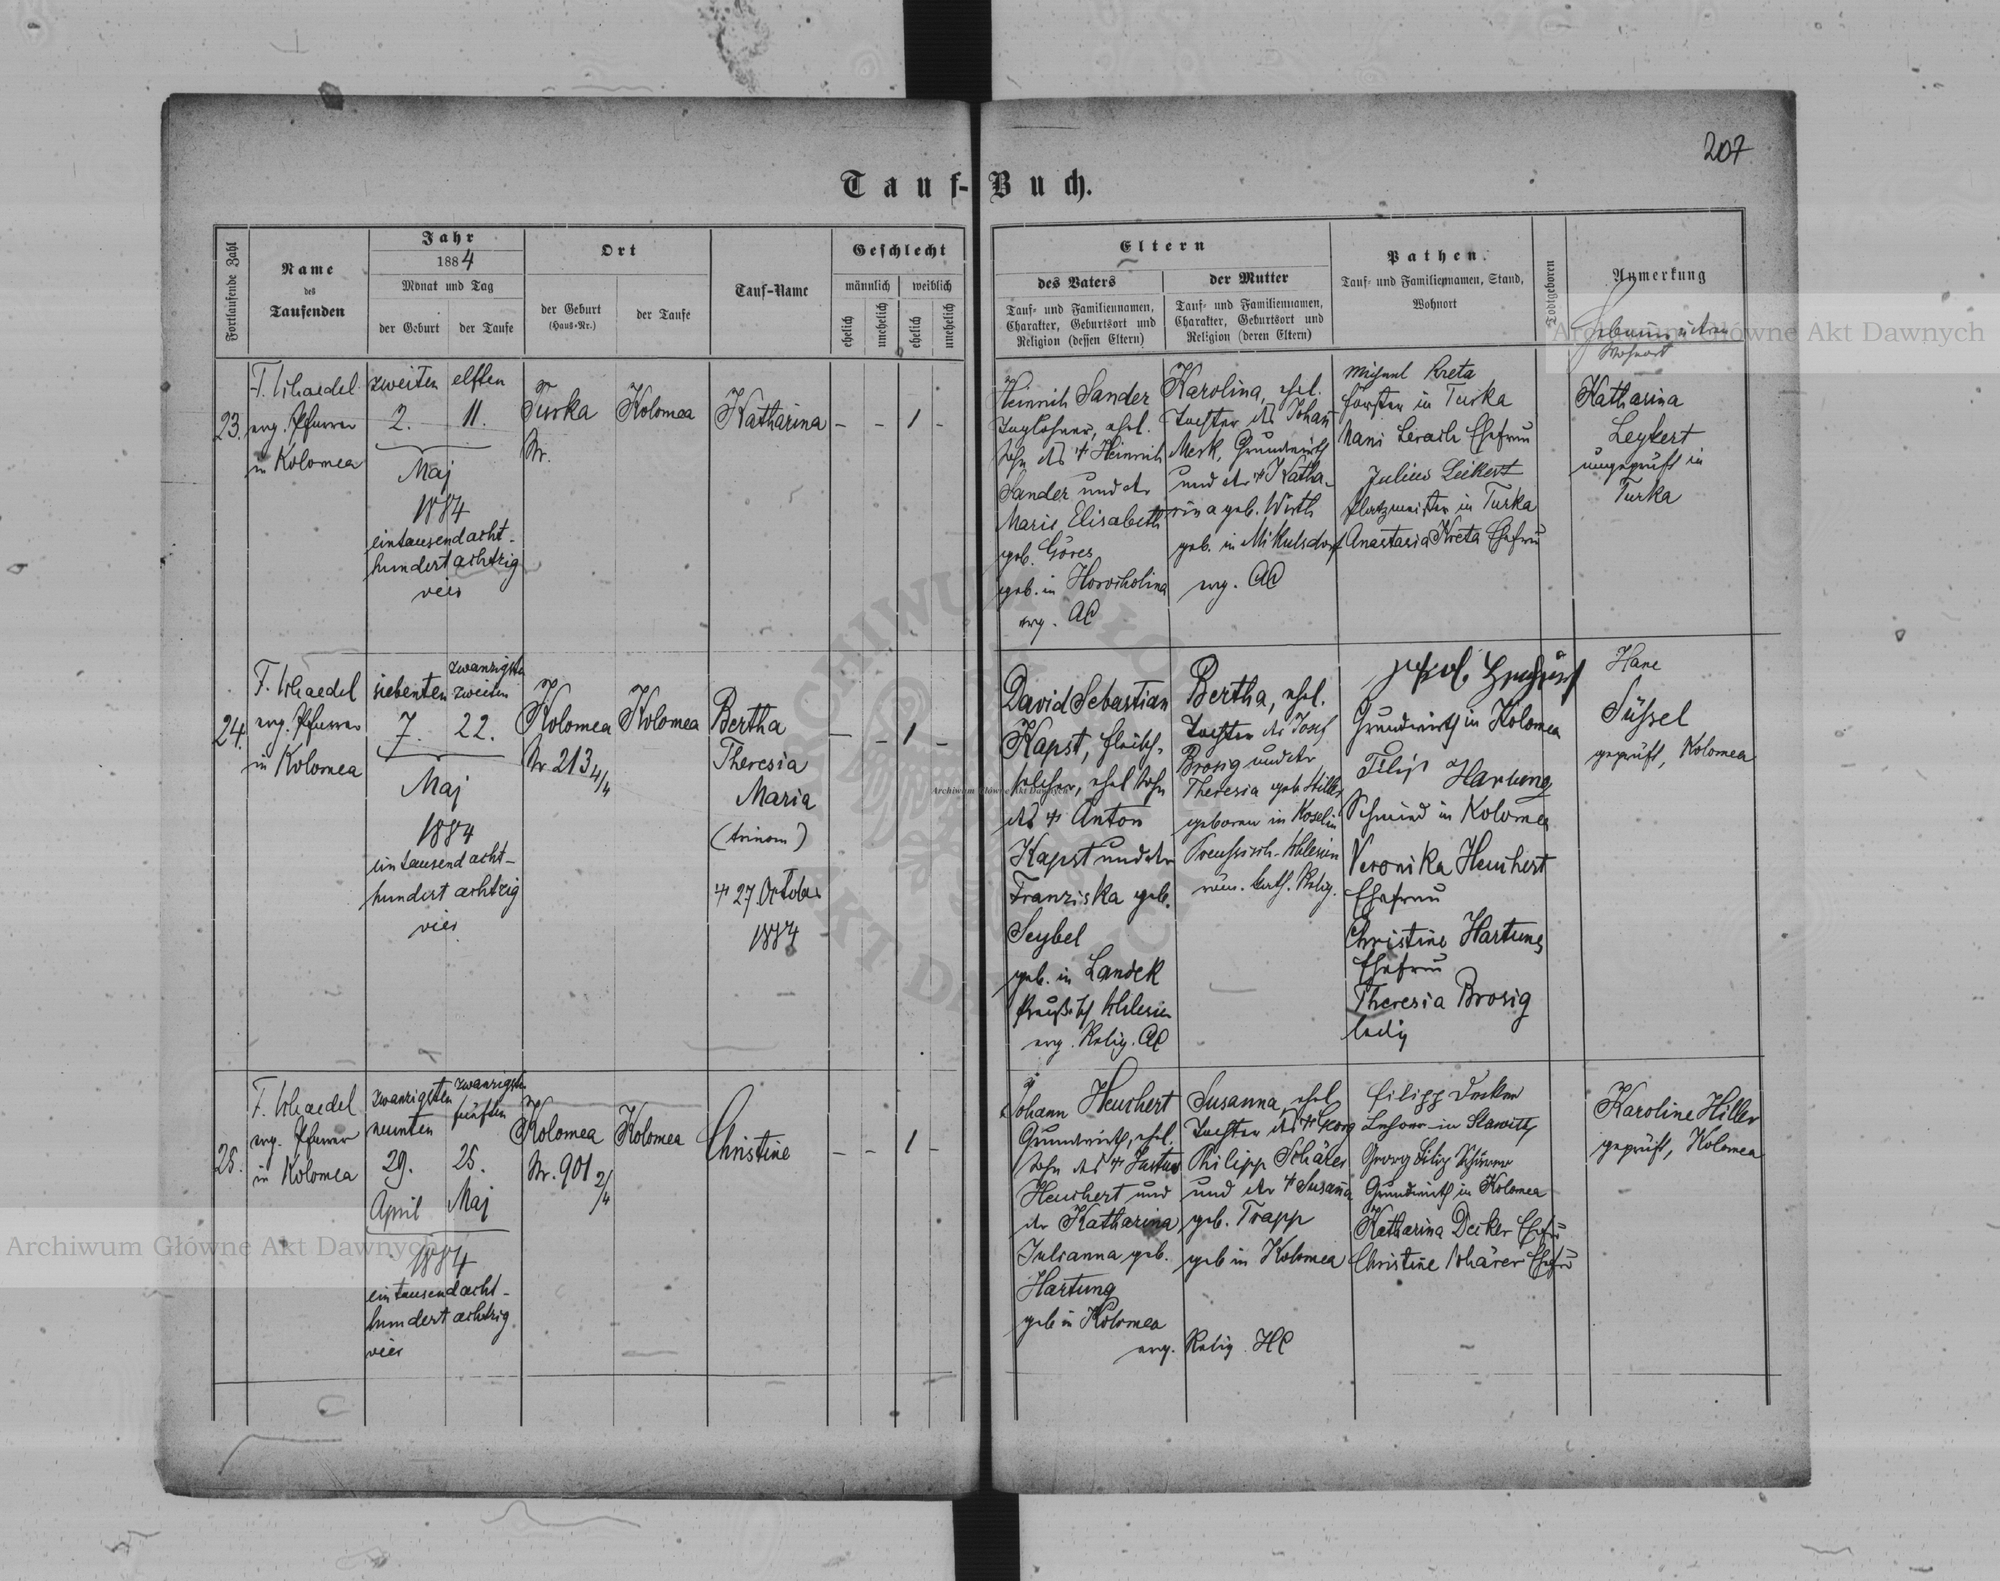 207
Tauf-Buch.
Fortlaufende Zahl
Name
des
Taufenden
Jahr
1884
Monat und Tag
der Geburt
der Taufe
Ort
der Geburt
(Haus-Nr.)
der Taufe
Tauf-Name
Geschlecht
männlich
weiblich
ehelich
unehelich
ehelich
unehelich
Eltern
des Vaters
Tauf- und Familiennamen,
Charakter, Geburtsort und
Religion (dessen Eltern)
der Mutter
Tauf- und Familiennamen,
Charakter, Geburtsort und
Religion (deren Eltern)
Pathen.
Tauf- und Familiennamen, Stand,
Wohnort
Todtgeboren
Anmerkung
Wohnort
23.
evg. Pfarrer
in Kolomea
zweiten
2.
elften
11.
Maj
1884
eintausendacht-
hundert achtzig
vier
Turka
Nr.
Kolomea
Katharina
- - 1 -
Heinrich Sander
Taglöhner, ehel.
Sohn des + Heinrich
Sander und der
Marie Elisabeth
geb. Göres
geb. in Horocholina
evg. AC
Karolina, ehel.
Tochter des Johann
Merk, Grundwirth
und der + Katha-
rina geb. Wirth
geb. in Mikulsdorf
evg. AC
Michael Kreta
Förster in Turka
Ehefrau
Julius Leikert
Platzmeister in Turka
Anastasia Kreta Ehefrau
Katharina
Leykert
ungeprüft in
Turka
24.
evg. Pfarrer
in Kolomea
siebenten
7.
zwanzigsten
zweiten
22.
Maj
1884
eintausendacht-
hundert achtzig
vier
Kolomea
Nr. 213 4/4
Kolomea
Bertha
Theresia
Maria
(trinom)
+ 27. October
1884
- - 1 -
David Sebastian
Kapst, Fleisch-
selcher, ehel. Sohn
des + Anton
Kapst und der
Franziska geb.
Seybel
geb. in Landek
Preußisch Schlesien
evg. Relig. AC
Bertha, ehel.
Tochter des Josef
Brosig und der
Theresia geb. Hiller
geboren in Koselin
Preussisch-Schlesien
röm. kath. Relig.
Grundwirth in Kolomea
Filip Hartung
Schmied in Kolomea
Veronika Heuchert
Ehefrau
Christine Hartung
Ehefrau
Theresia Brosig
ledig
Hane
Süssel
geprüft, Kolomea
25.
evg. Pfarrer
in Kolomea
zwanzigsten
neunten
29.
April
zwanzigsten
fünften
25.
Maj
1884
eintausendacht-
hundert achtzig
vier
Kolomea
Nr. 901 2/4
Kolomea
Christine
- - 1 -
Johann Heuchert
Grundwirth, ehel.
Sohn des + Justus
Heuchert und
der Katharina
Julianna geb.
Hartung
geb in Kolomea
evg. Relig. HC
Susanna, ehel
Tochter des + Georg
Philipp Schärer
und der + Susanna
geb. Trapp
geb in Kolomea
Filipp Decker
Lehrer in
Georg Filip Schärer
Grundwirth in Kolomea
Katharina Decker Ehefr
Christine Schärer Ehefr
Karoline Hiller
geprüft, Kolomea
Archiwum Główne Akt Dawnych
Archiwum Główne Akt Dawnych
Archiwum Główne Akt Dawnych
ARCHIWUM GŁÓWNE AKT DAWNYCH